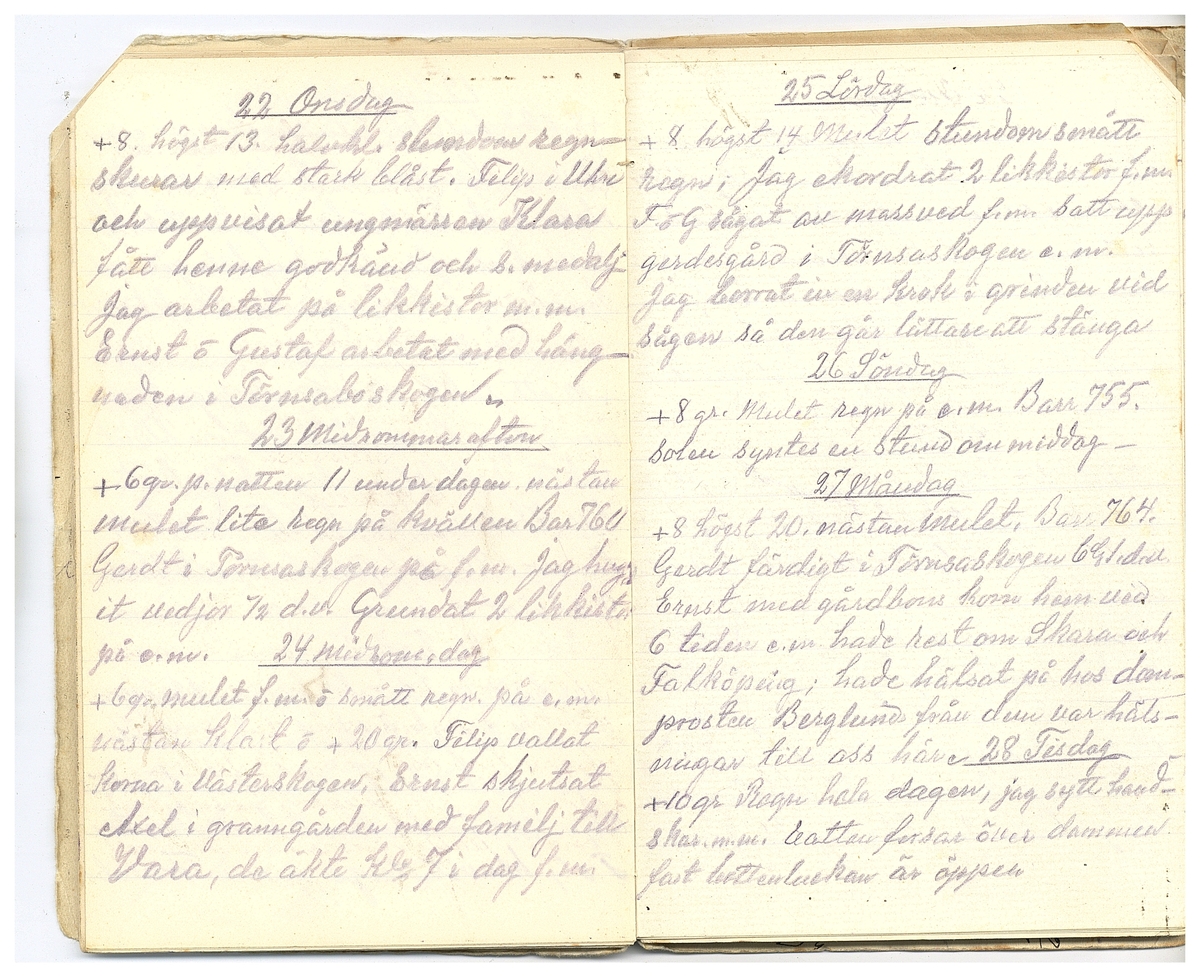 22 Onsdag
+8. högst 13. halvkl. stundom regn-
skurar med stark blåst. Filip i
och uppvisat ungmärren Klara
fått henne godkänd och s. medalj
Jag arbetat på likkistor m.m.
Ernst o Gustaf arbetat med häng-
naden i Törnsaboskogen.
23 Midsommarafton
+6gr. p. natten 11 under dagen. nästan
mulet lite regn på kvällen Bar 760
Gerdt i Törnsaskogen på f.m. Jag hug-
it vedjor 1/2 d.v. Grundat 2 likkistor
på e.m.
24 Midsom. dag
+6gr. mulet f.m. o smått regn. på e.m.
nästan klart o +20 gr. Filip vallat
korna i Västerskogen; Ernst skjutsat
Axel i granngården med familj till
Vara, de åkte kl. 7 i dag f.m.
25 Lördag
+8 högst 14 Mulet stundom smått
regn; Jag ekordrat 2 likkistor f.m.
F. o G sågat av massved f.m. satt upp
gerdesgård i Törnsaskogen e.m.
Jag borrat in en krok i grinden vid
sågen så den går lättare att stänga
26 Söndag
+8 gr. Mulet regn på e.m. Barr 755.
solen syntes en stund om middag -
27 Måndag
+8 högst 20. nästan mulet. Barr 764.
Gerdt färdigt i Törnsaskogen
Ernst med gårdbons kom hem ved
6 tiden e.m. hade rest om Skara och
Falköping; hade hälsat på hos dom-
prosten Berglund från dem var häls-
ningar till oss här.
28 Tisdag
+10gr Regn hela dagen, jag sytt hand-
skar. m.m. Vatten forsar över dammen
fast bottenluckan är öppen